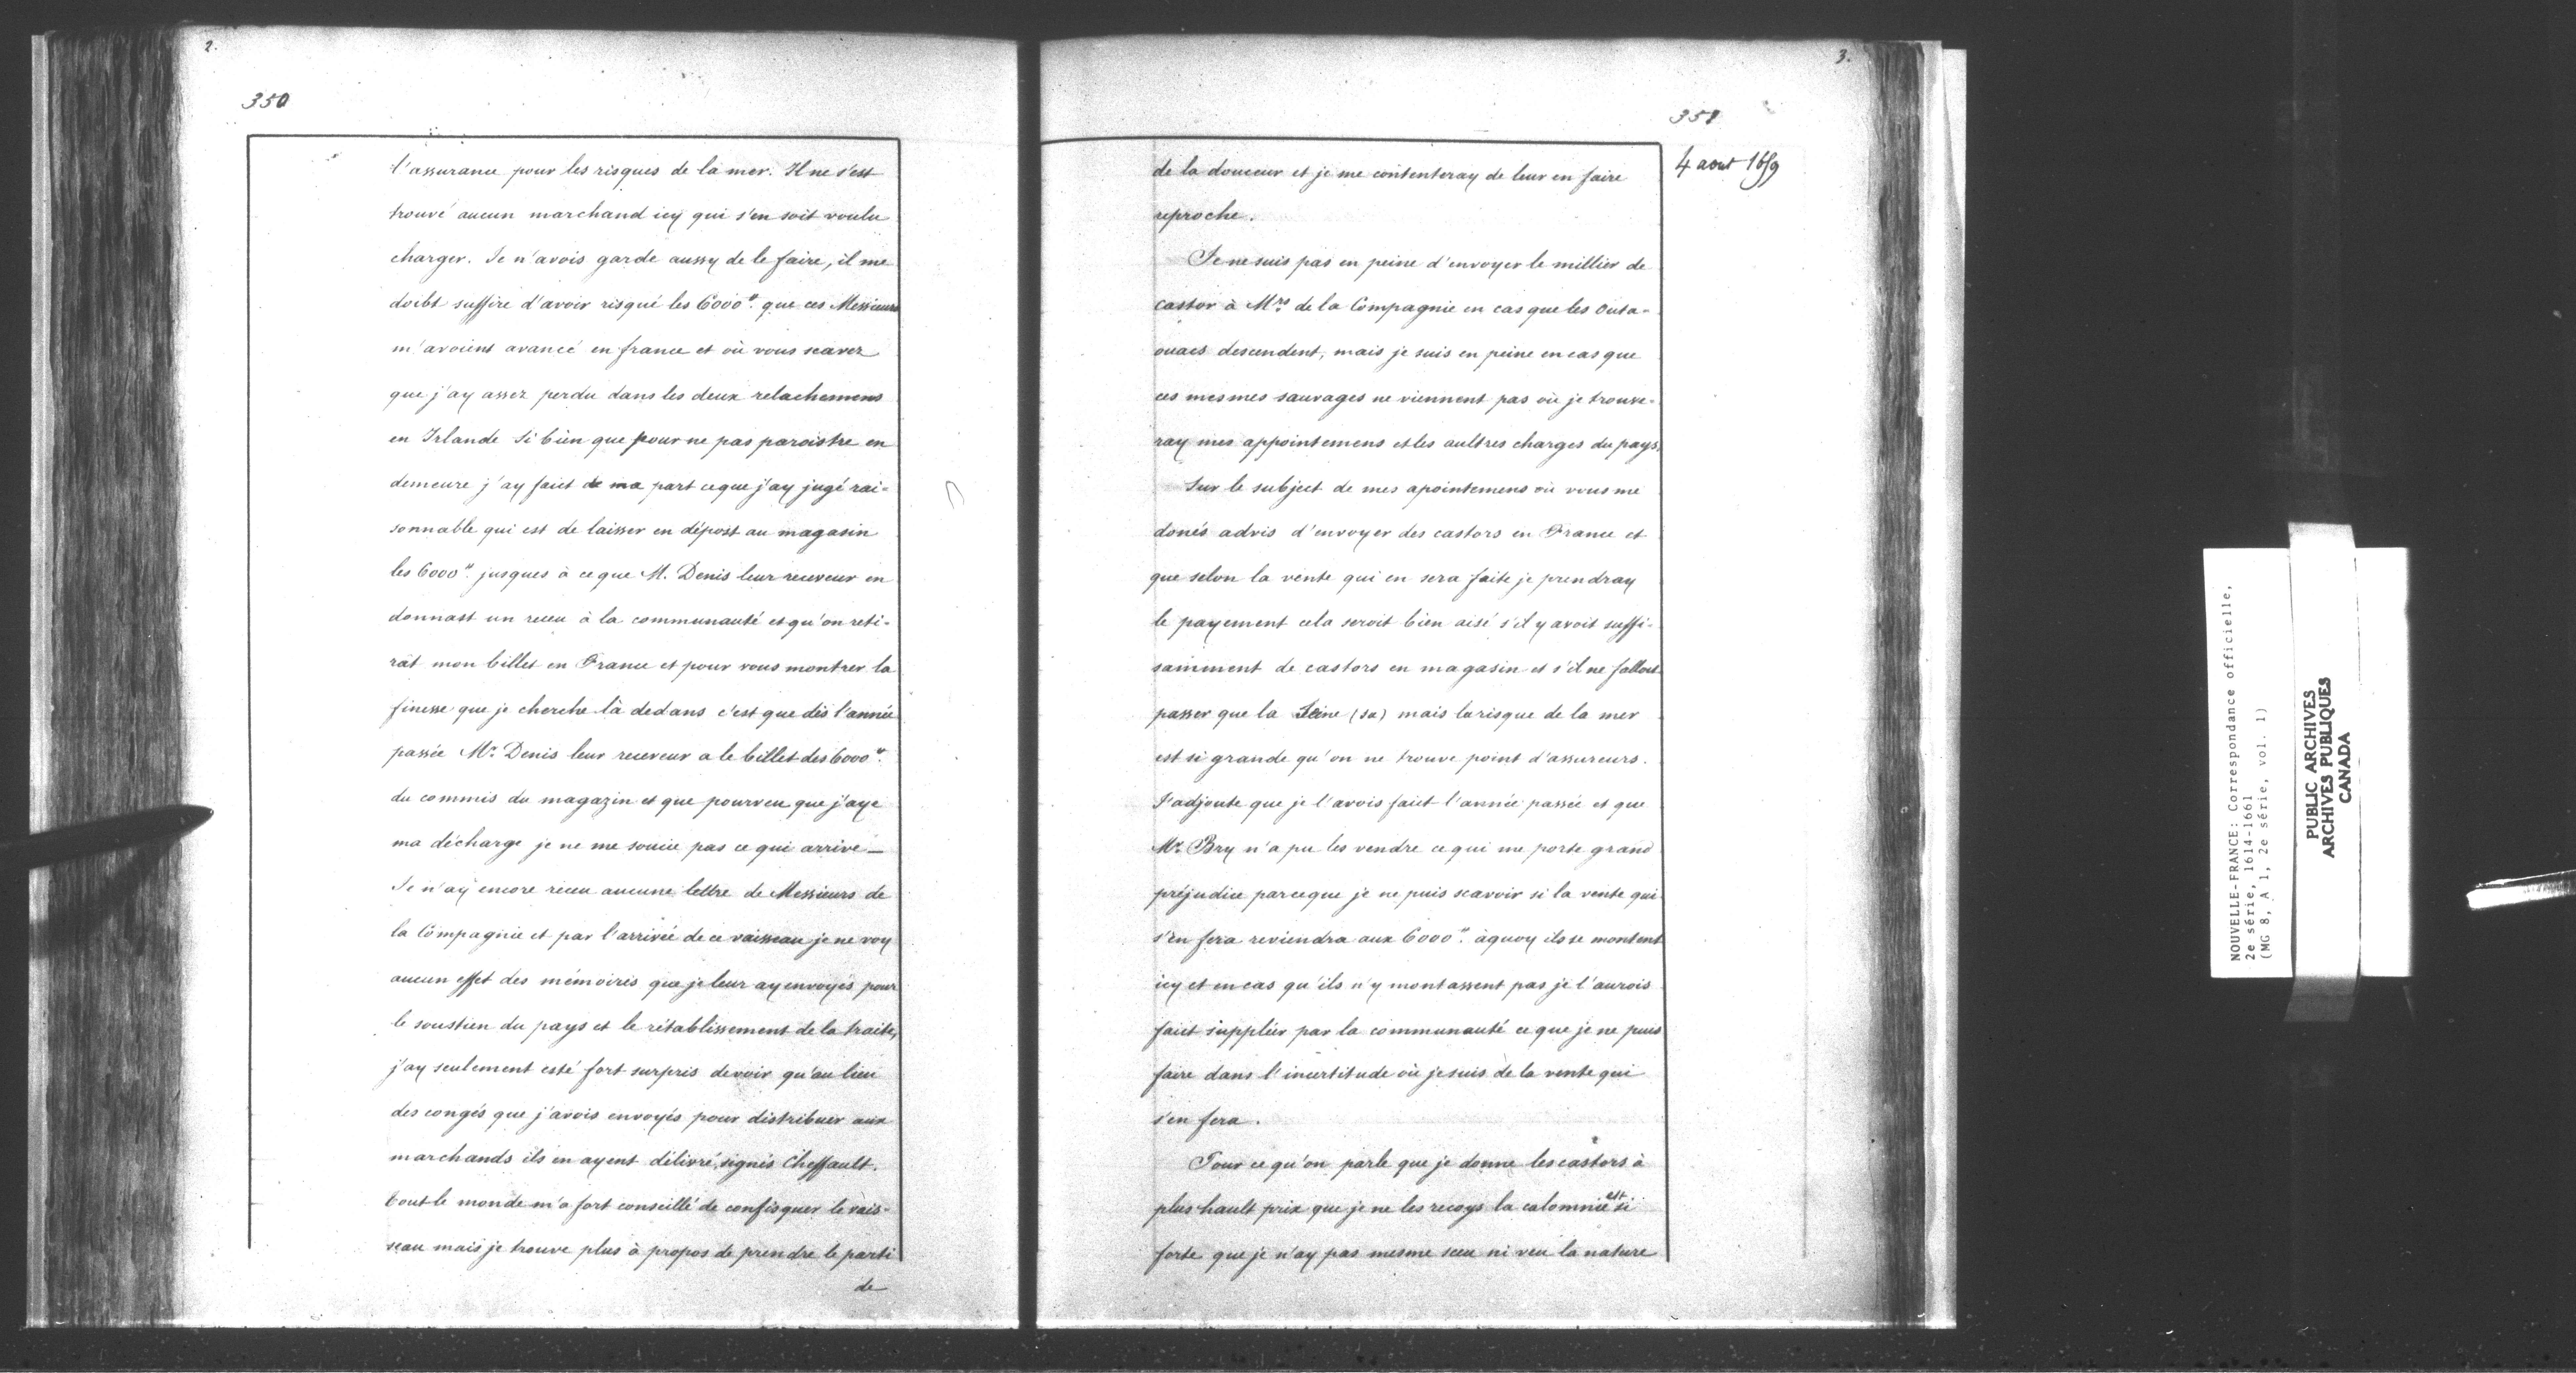 2.
350
l'assurance pour les risques de la mer. Il ne s'est
trouvé aucun marchand icy qui s'en soit voulu
charger. Je n'avois garde aussy de le faire, il me
doibt suffire d'avoir risqué les 6000# que ces Messieurs
m'avoient avancé en france et où vous scavez
que j'ay assez perdu dans les deux relachemens
en Irlande si bien que pour ne pas paroistre en
demeure j'ay faict de ma part ce que j'ay jugé rai-
sonnable qui est de laisser en dépost au magasin
les 6000# jusques à ce que M. Denis leur receveur en
donnast un receu à la communauté et qu'on reti-
rât mon billet en France et pour vous montrer la
finesse que je cherche là dedans c'est que dès l'année
passée Mr. Denis leur receveur a le billet des 6000#
du commis du magazin et que pourveu que j'aye
ma décharge je ne me soucie pas ce qui arrive_
Je n'ay encore receu aucune lettre de Messieurs de
la Compagnie et par l'arrivée de ce vaisseau je ne voy
aucun effet des mémoires que je leur ay envoyés pour
le soustien du pays et le rétablissement de la traite,
j'ay seulement esté fort surpris de voir qu'au lieu
des congés que j'avois envoyés pour distribuer aux
marchands ils en ayent délivré, signés Cheffault.
tout le monde m'a fort conseillé de confisquer le vais-
seau mais je trouve plus à propos de prendre le parti
de
3.
351
4 aout 1659
de la douceur et je me contenteray de leur en faire
reproche.
Je ne suis pas en peine d'envoyer le millier de
castor à Mrs de la Compagnie en cas que les Outa-
ouacs descendent, mais je suis en peine en cas que
ces mesmes sauvages ne viennent pas où je trouve-
ray mes appointemens et les aultres charges du pays.
Sur le subject de mes apointemens où vous me
donés advis d'envoyer des castors en France et
que selon la vente qui en sera faite je prendray
le payement cela seroit bien aisé s'il y avoit suffi-
samment de castors en magasin et s'il ne falloit
passer que la Seine (sa) mais la risque de la mer
est si grande qu'on ne trouve point d'assureurs.
J'adjoute que je l'avois faict l'année passée et que
Mr. Bry n'a pu les vendre ce qui me porte grand
préjudice parceque je ne puis scavoir si la vente qui
s'en fera reviendra aux 6000# à quoy ils se montent
icy et en cas qu'ils n'y montassent pas je l'aurois
faict supplèir par la communauté ce que je ne puis
faire dans l'incertitude où je suis de la vente qui
s'en fera.
Pour ce qu'on parle que je donne les castors à
plus hault prix que je ne les reçoys la calomnie est si
forte que je n'ay pas mesme sceu ni veu la nature
NOUVELLE-FRANCE: Correspondance officielle,
2e série, 1614-1661
(MG 8, A 1, 2e série, vol. 1)
PUBLIC ARCHIVES
ARCHIVES PUBLIQUES
CANADA